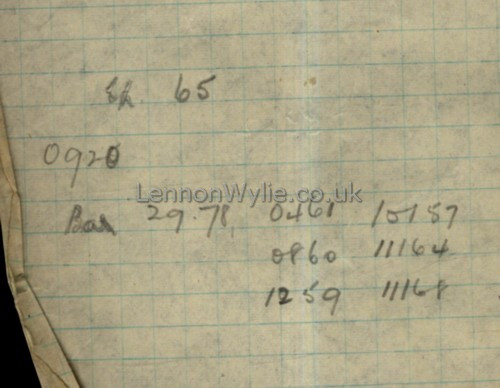 65
0920
LennonWylie.co.uk
Bar 29.78, 0461 10157
0860 11164
1259 11168